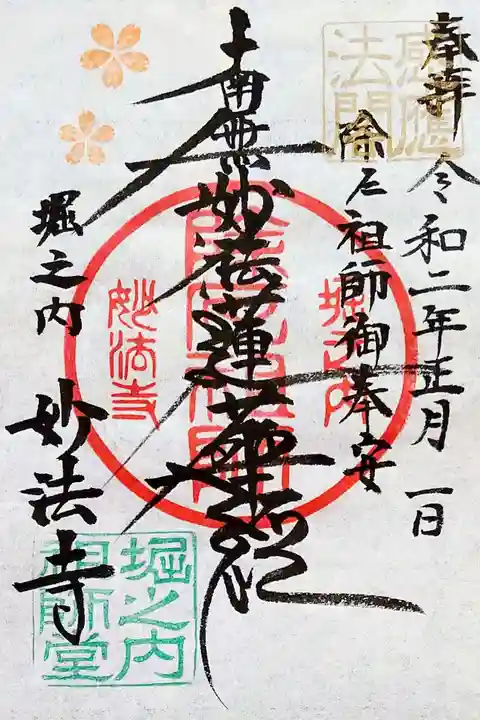 奉拝
令和二年正月一日
除厄祖師御奉安
南無妙法蓮華経
堀之内
妙法寺
感應法閣
堀之内
除厄祖師
妙法寺
堀之内
祖師堂